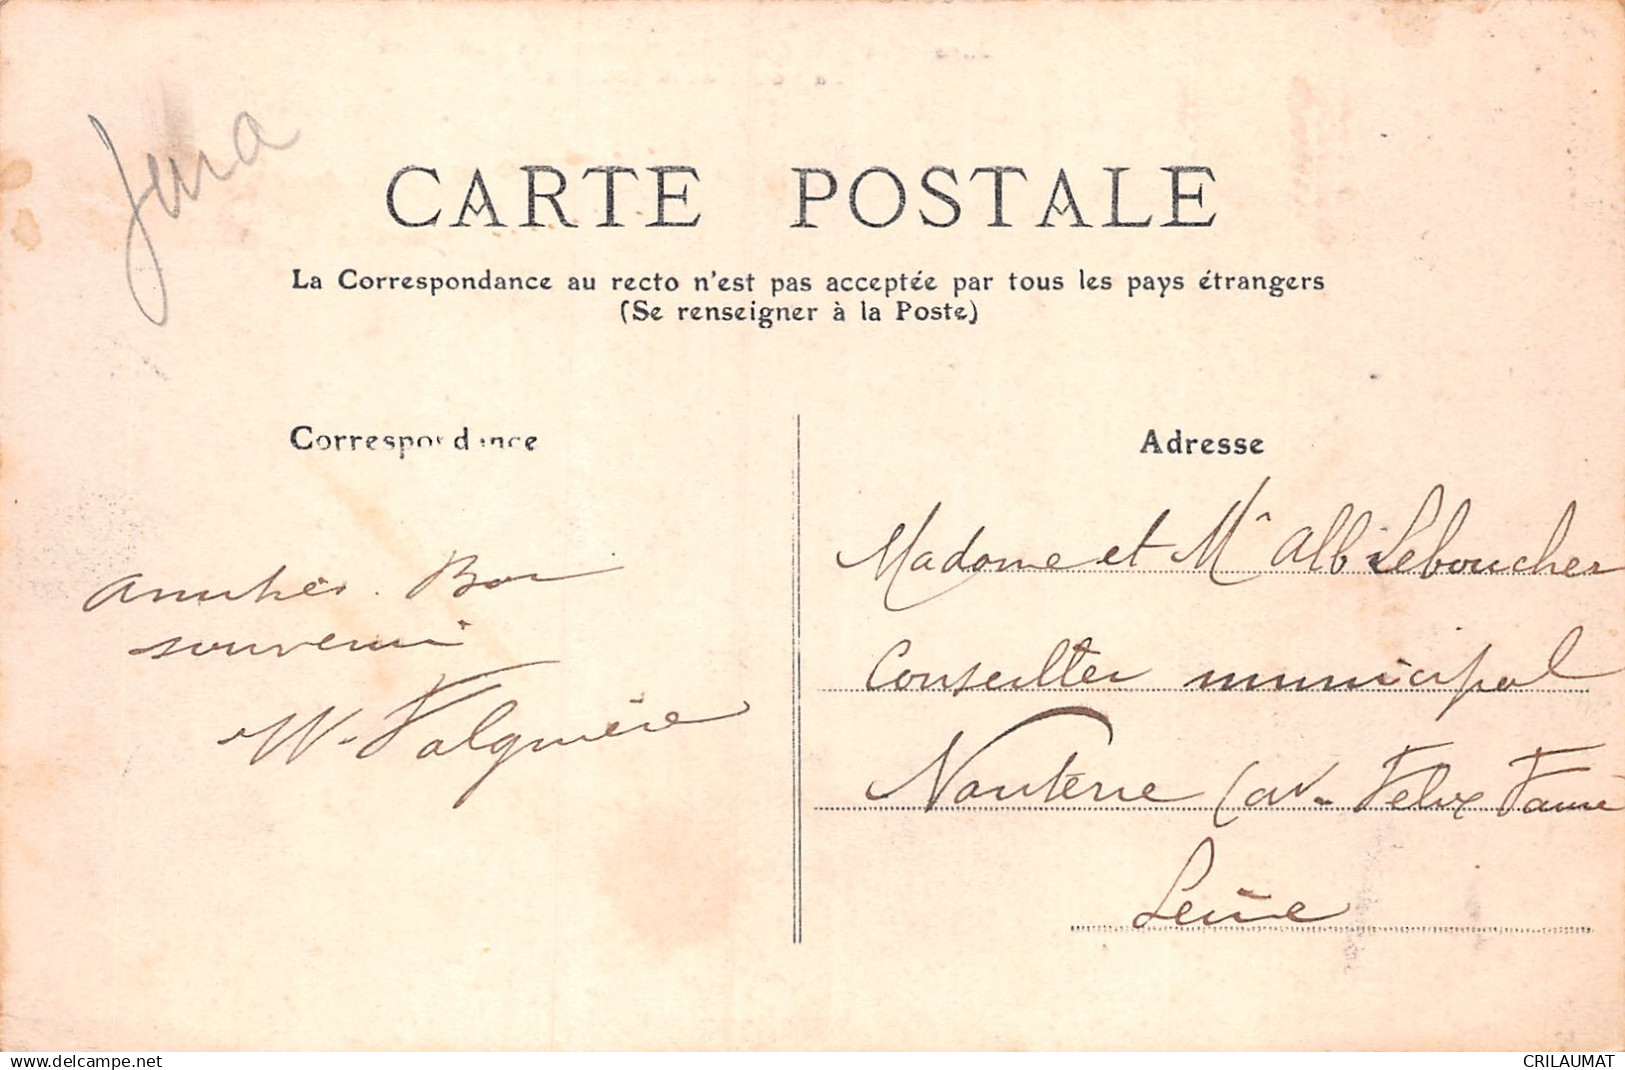 Jura
CARTE POSTALE
La Correspondance au recto n'est pas acceptée par tous les pays étrangers
(Se renseigner à la Poste)
Correspondance
Adresse
Amitiés. Bon
souvenir
Madame et Mr Alb Leboucher
Conseiller municipal
Nanterre (av. Felix Faure
Seine
delcampe.net
CRILAUMAT